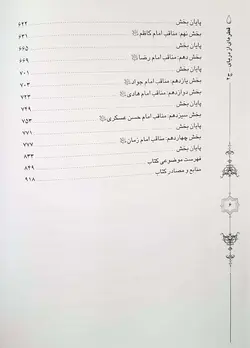 قطره‌ای از دریای ... ج ۲
پایان بخش ۶۲۲
بخش نهم: مناقب امام کاظم ۶۳۱
پایان بخش ۶۶۵
بخش دهم: مناقب امام رضا ۶۶۹
پایان بخش ۷۰۱
بخش یازدهم: مناقب امام جواد ۷۰۳
پایان بخش ۷۲۳
بخش دوازدهم: مناقب امام هادی ۷۲۹
پایان بخش ۷۴۹
بخش سیزدهم: مناقب امام حسن عسکری ۷۵۳
پایان بخش ۷۷۱
بخش چهاردهم: مناقب امام زمان ۷۷۷
پایان بخش ۸۳۳
فهرست موضوعی کتاب ۸۴۹
منابع و مصادر کتاب ۹۱۸
۶